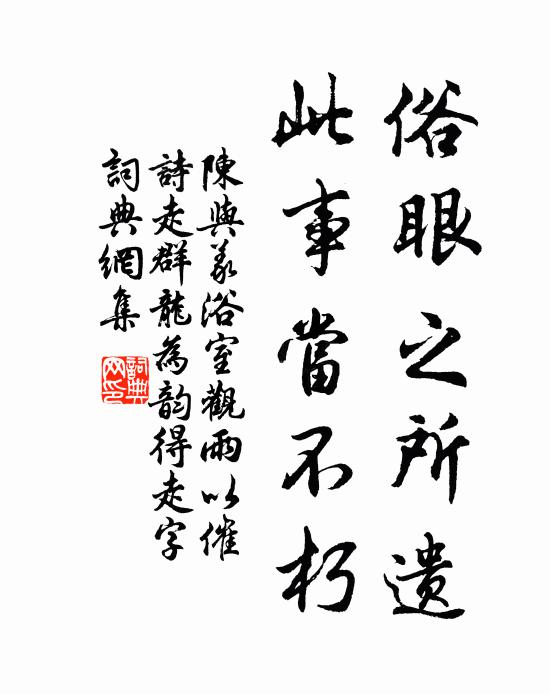 俗眼之所遗
此事當不朽
陳與義浴室觀雨以催
詩走群龍為韵得走字
詞典網集
詞典網印